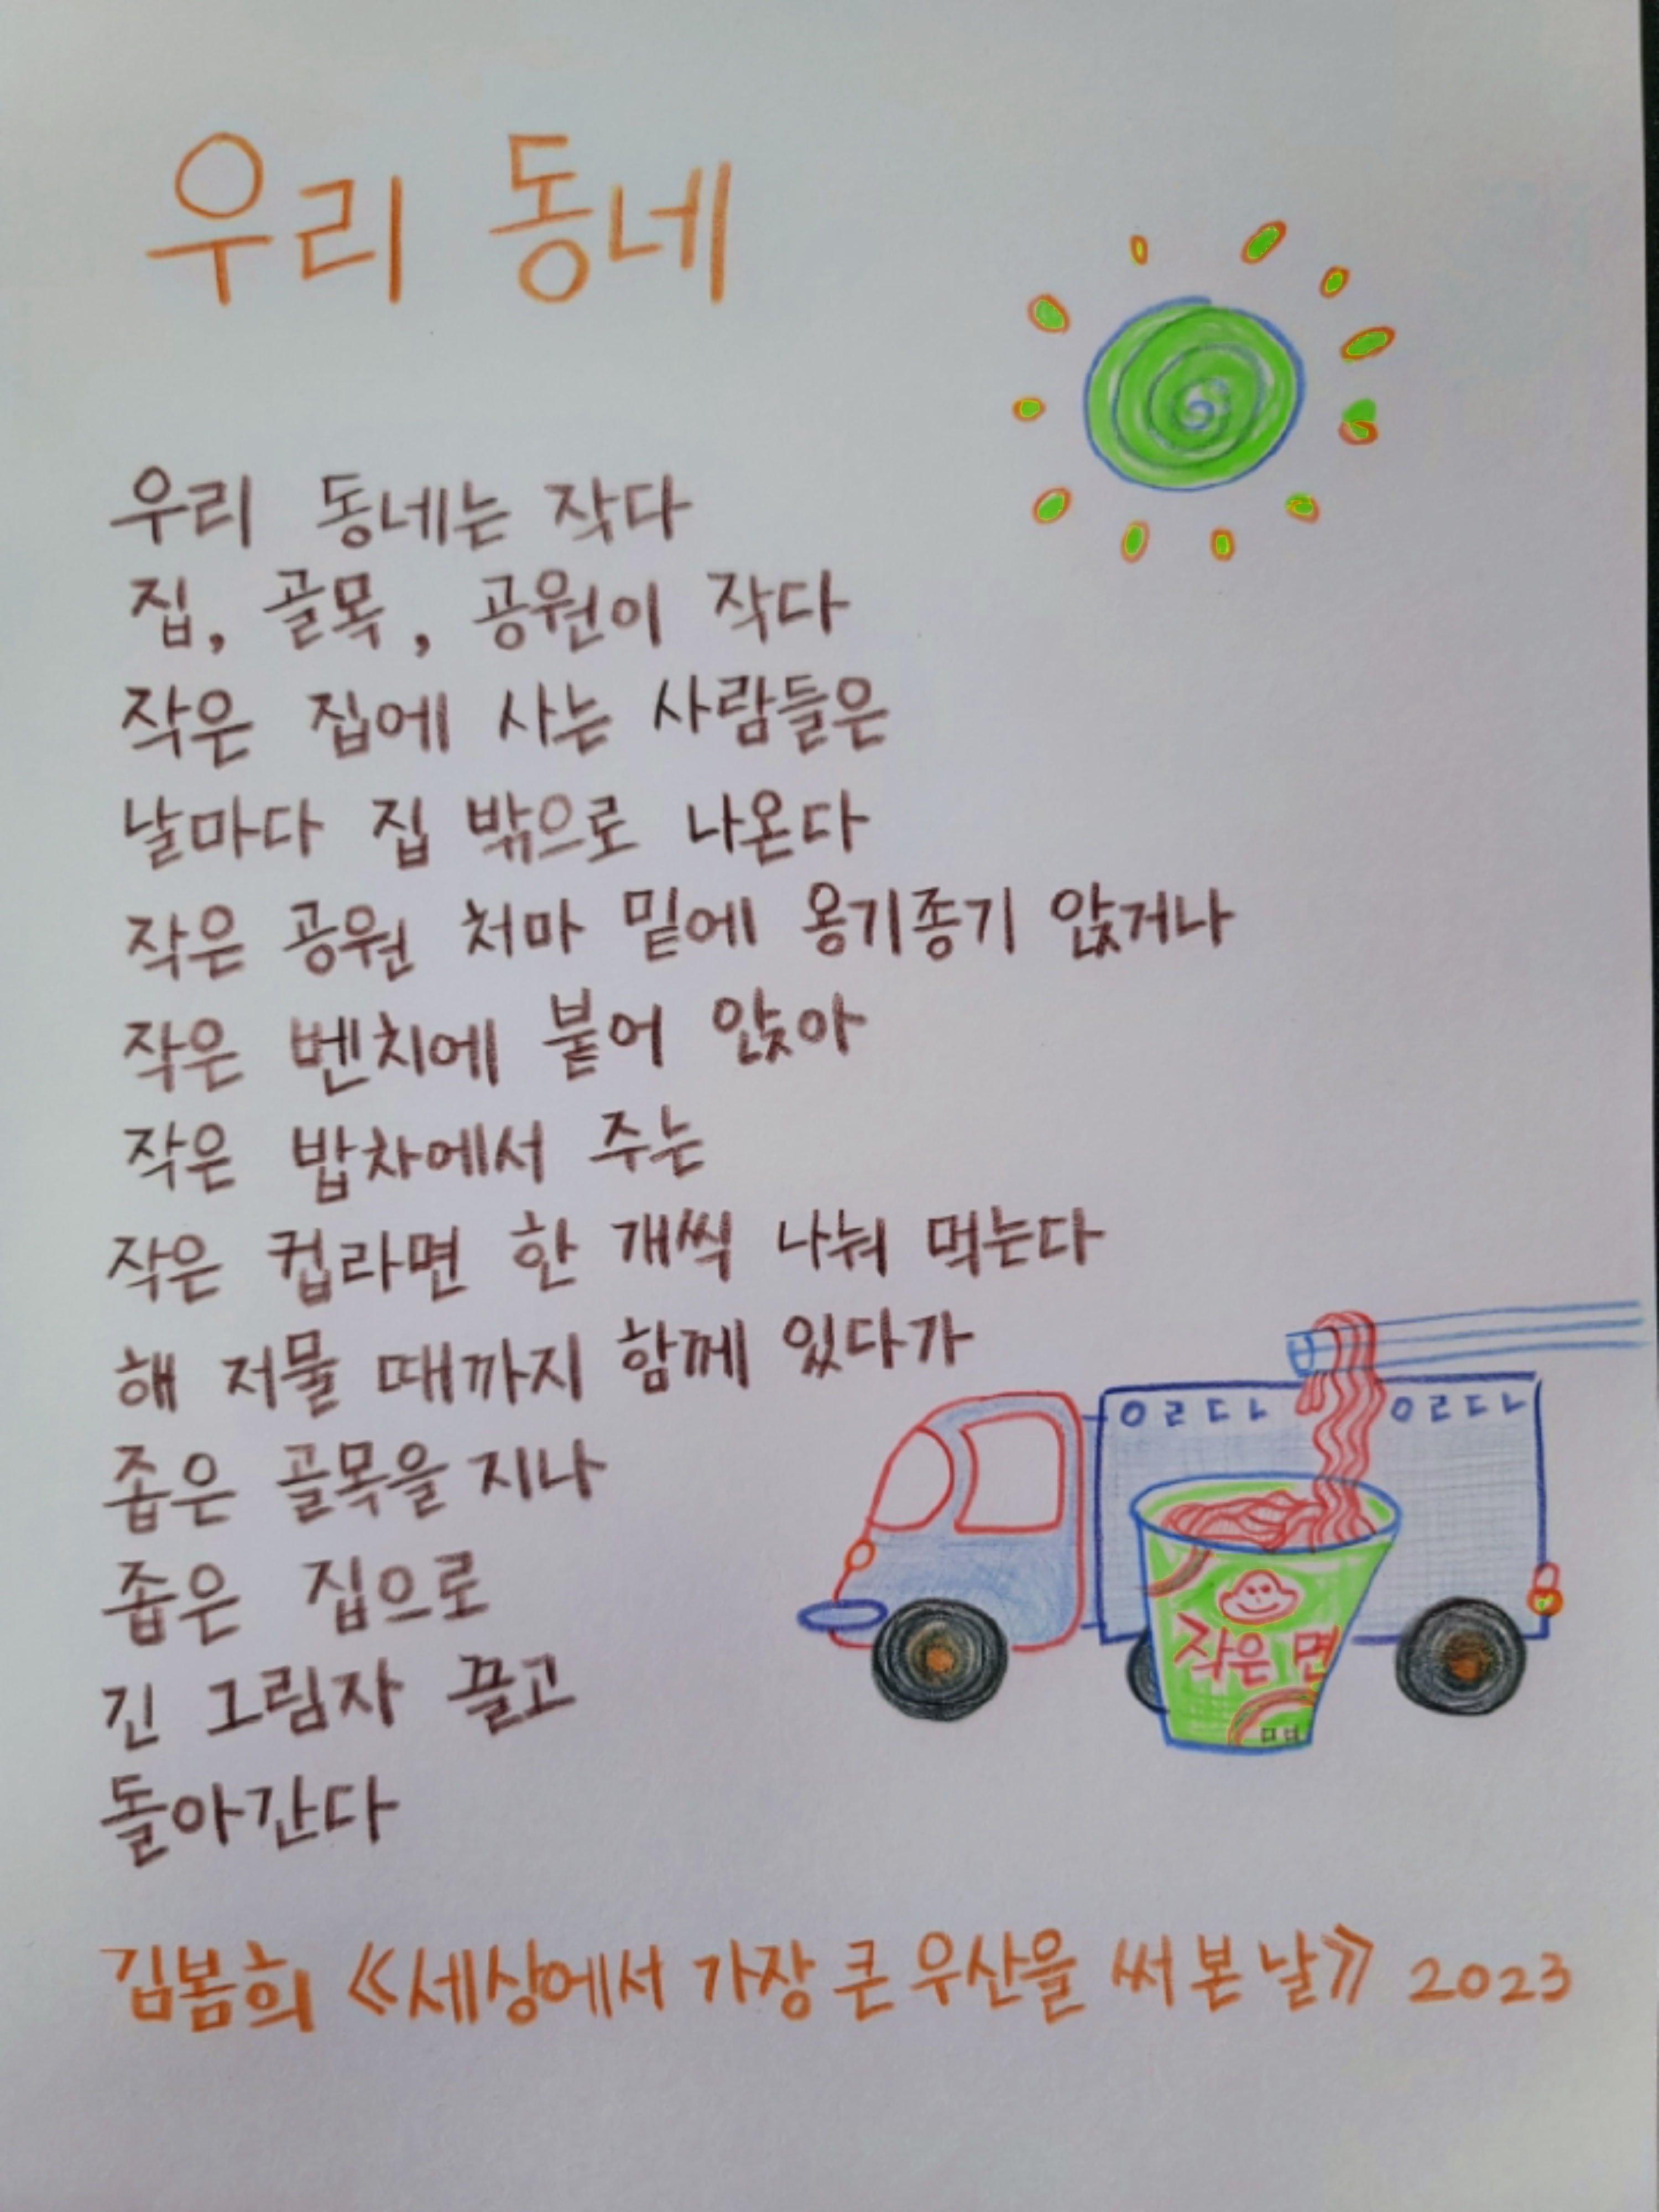 우리 동네
우리 동네는 작다
집, 골목, 공원이 작다
작은 집에 사는 사람들은
날마다 집 밖으로 나온다
작은 공원 처마 밑에 옹기종기 앉거나
작은 벤치에 붙어 앉아
작은 밥차에서 주는
작은 컵라면 한 개씩 나눠 먹는다
해 저물 때까지 함께 있다가
좁은 골목을 지나
좁은 집으로
긴 그림자 끌고
돌아간다
ㅇㄹㄷㅏ ㅇㄹㄷㅏ
작은 면
ㅁㅂ
김봄희 《세상에서 가장 큰 우산을 써 본 날》 2023